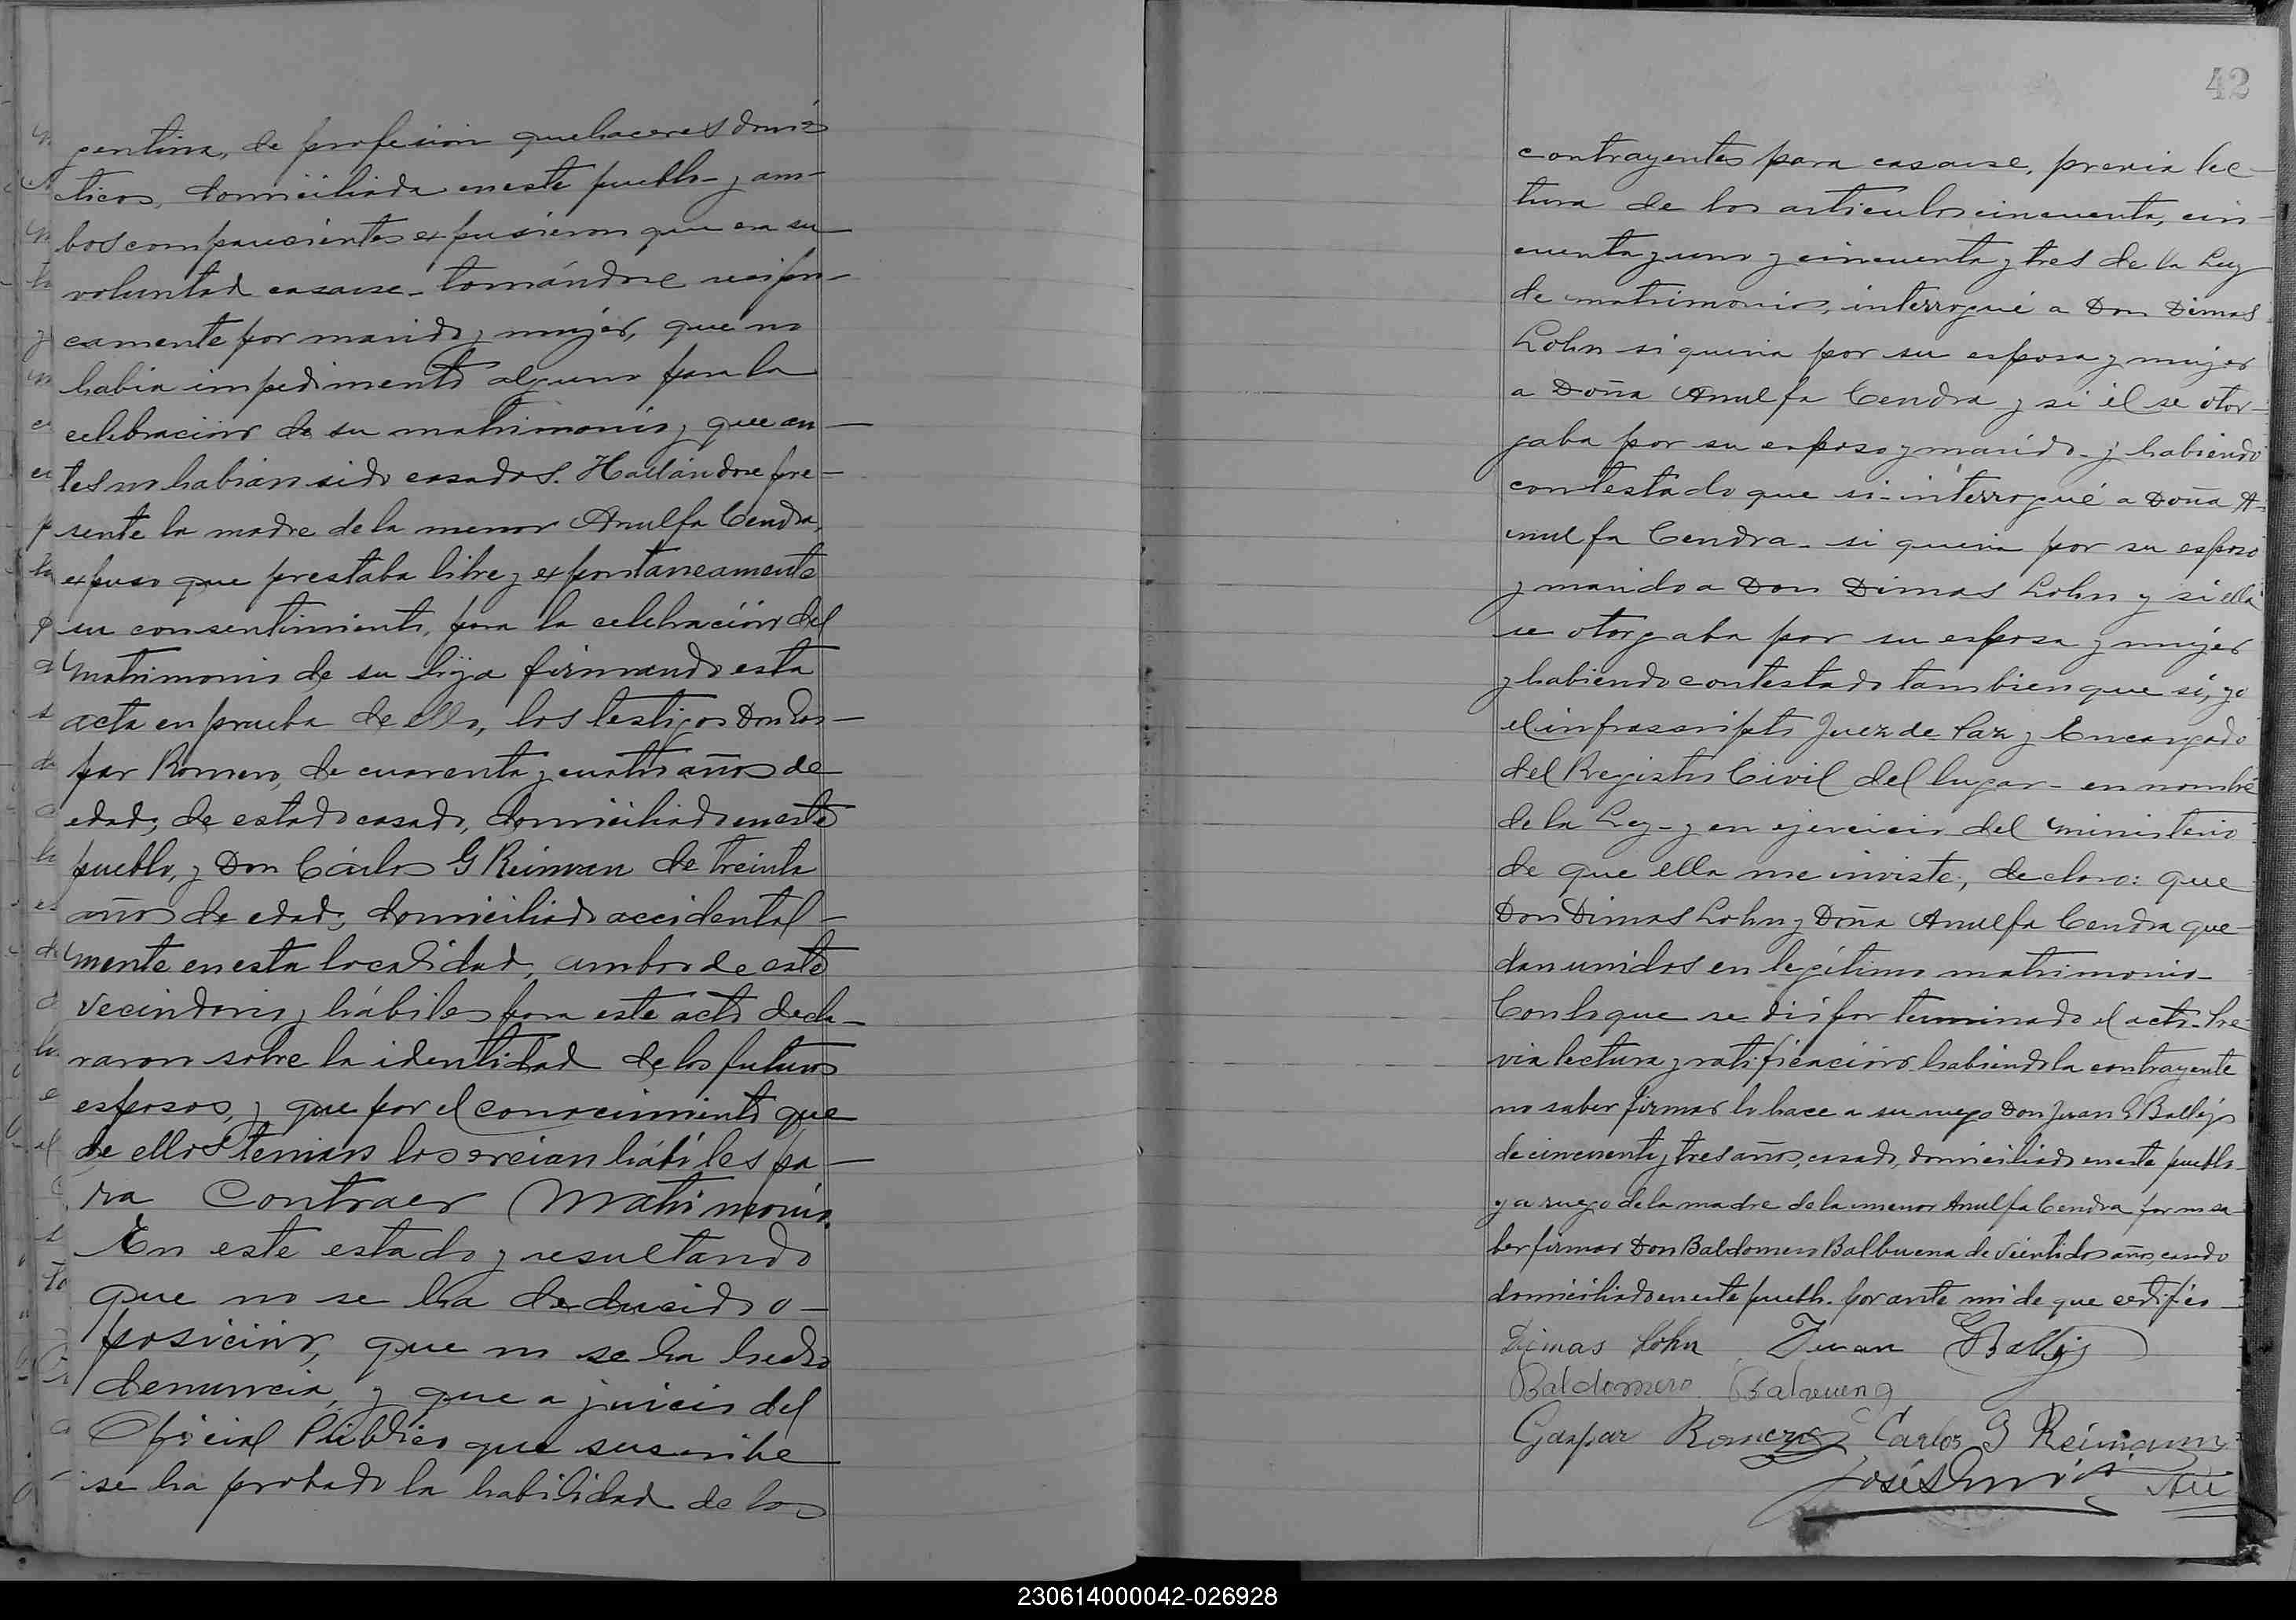 gentina, de profesion quehaceres domés
ticos, domiciliada en este pueblo y am-
bos comparecientes expusieron que era su
voluntad casarse tomándose recipro-
camente por marido y mujer, que no
habia impedimento alguno para la
celebracion de su matrimonio y que an-
tes no habian sido casados. Hallándose pre-
sente la madre de la menor Anulfa Cendra,
expuso que prestaba libre y expontaneamente
su consentimiento, para la celebración del
matrimonio de su hija firmando esta
acta en prueba de ello, los testigos Don Gas-
par Romero, de cuarenta y cuatro años de
edad, de estado casado, domiciliado en este
pueblo, y Don Cárlos G Reiman de treinta
años de edad, domiciliado accidental-
mente en esta localidad, ambos de este
vecindario y hábiles para este acto decla-
raron sobre la identidad de los futuros
esposos, y que por el conocimiento que
de ellos tenian los creian hábiles pa-
ra contraer matrimonio.
En este estado y resultando
que no se ha deducido o-
posicion, que no se ha hecho
denuncia, y que a juicio del
Oficial Público que suscribe
se ha probado la habilidad de los
42
contrayentes para casarse, previa lec-
tura de los articulos cincuenta, cin-
cuenta y uno y cincuenta y tres de la Ley
de matrimonio, interrogué a Don Dimas
Lohn si queria por su esposa y mujer
a Doña Anulfa Cendra y si él se otor-
gaba por su esposo y marido y habiendo
contestado que si interrogué a Doña A-
nulfa Cendra si queria por su esposo
y marido a Don Dimas Lohn y si ella
se otorgaba por su esposa y mujer
y habiendo contestado tambien que si, yo
el infrascripto Juez de Paz y Encargado
del Registro Civil del lugar en nombre
de la Ley y en ejercicio del ministerio
de que ella me inviste, declaro: que
Don Dimas Lohn y Doña Anulfa Cendra que-
dan unidos en legítimo matrimonio
Con lo que se dió por terminado el acto. Pre-
via lectura y ratificacion habiendo la contrayente
no saber firmar lo hace a su ruego Don Juan G Ballejo
de cincuenta y tres años, casado, domiciliado en este pueblo
y a ruego de la madre de la menor Anulfa Cendra por no sa-
ber firmar Don Baldomero Balbuena de veintidos años, casado
domiciliado en este pueblo. Por ante mi de que certifico
Dimas Lohn Juan G Ballejo
Baldomero Balvuena
Gaspar Romero Carlos G Reimann
José
230614000042-026928